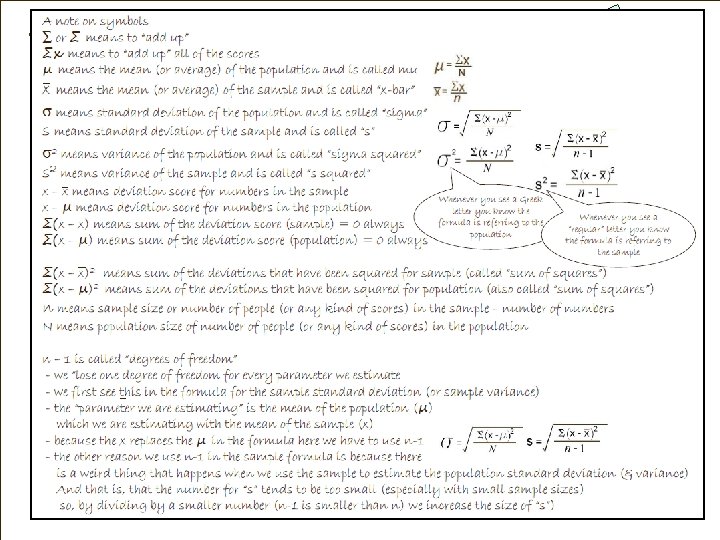 A note on symbols
Σ or Σ means to "add up"
Σx means to "add up" all of the scores
µ means the mean (or average) of the population and is called mu
x̅ means the mean (or average) of the sample and is called "x-bar"
µ = Σx / N
x̅ = Σx / n
σ means standard deviation of the population and is called "sigma"
S means standard deviation of the sample and is called "s"
σ = √(Σ(x - µ)² / N)
s = √(Σ(x - x̅)² / n - 1)
σ² means variance of the population and is called "sigma squared"
S² means variance of the sample and is called "s squared"
σ² = Σ(x - µ)² / N
s² = Σ(x - x̅)² / n - 1
x - x̅ means deviation score for numbers in the sample
x - µ means deviation score for numbers in the population
Σ(x - x) means sum of the deviation score (sample) = 0 always
Σ(x - µ) means sum of the deviation score (population) = 0 always
Whenever you see a Greek
letter you know the
formula is referring to the
population
Whenever you see a
"regular" letter you know
the formula is referring to
the sample
Σ(x – x̅)² means sum of the deviations that have been squared for sample (called "sum of squares")
Σ(x – µ)² means sum of the deviations that have been squared for population (also called "sum of squares")
n means sample size or number of people (or any kind of scores) in the sample – number of numbers
N means population size of number of people (or any kind of scores) in the population
n – 1 is called "degrees of freedom"
- we "lose one degree of freedom for every parameter we estimate
- we first see this in the formula for the sample standard deviation (or sample variance)
- the "parameter we are estimating" is the mean of the population (µ)
which we are estimating with the mean of the sample (x̅)
- because the x replaces the µ in the formula here we have to use n-1
- the other reason we use n-1 in the sample formula is because there
σ = √(Σ(x - µ)² / N)
s = √(Σ(x - x̅)² / n - 1)
is a weird thing that happens when we use the sample to estimate the population standard deviation (& variance)
And that is, that the number for "s" tends to be too small (especially with small sample sizes)
so, by dividing by a smaller number (n-1 is smaller than n) we increase the size of "s")